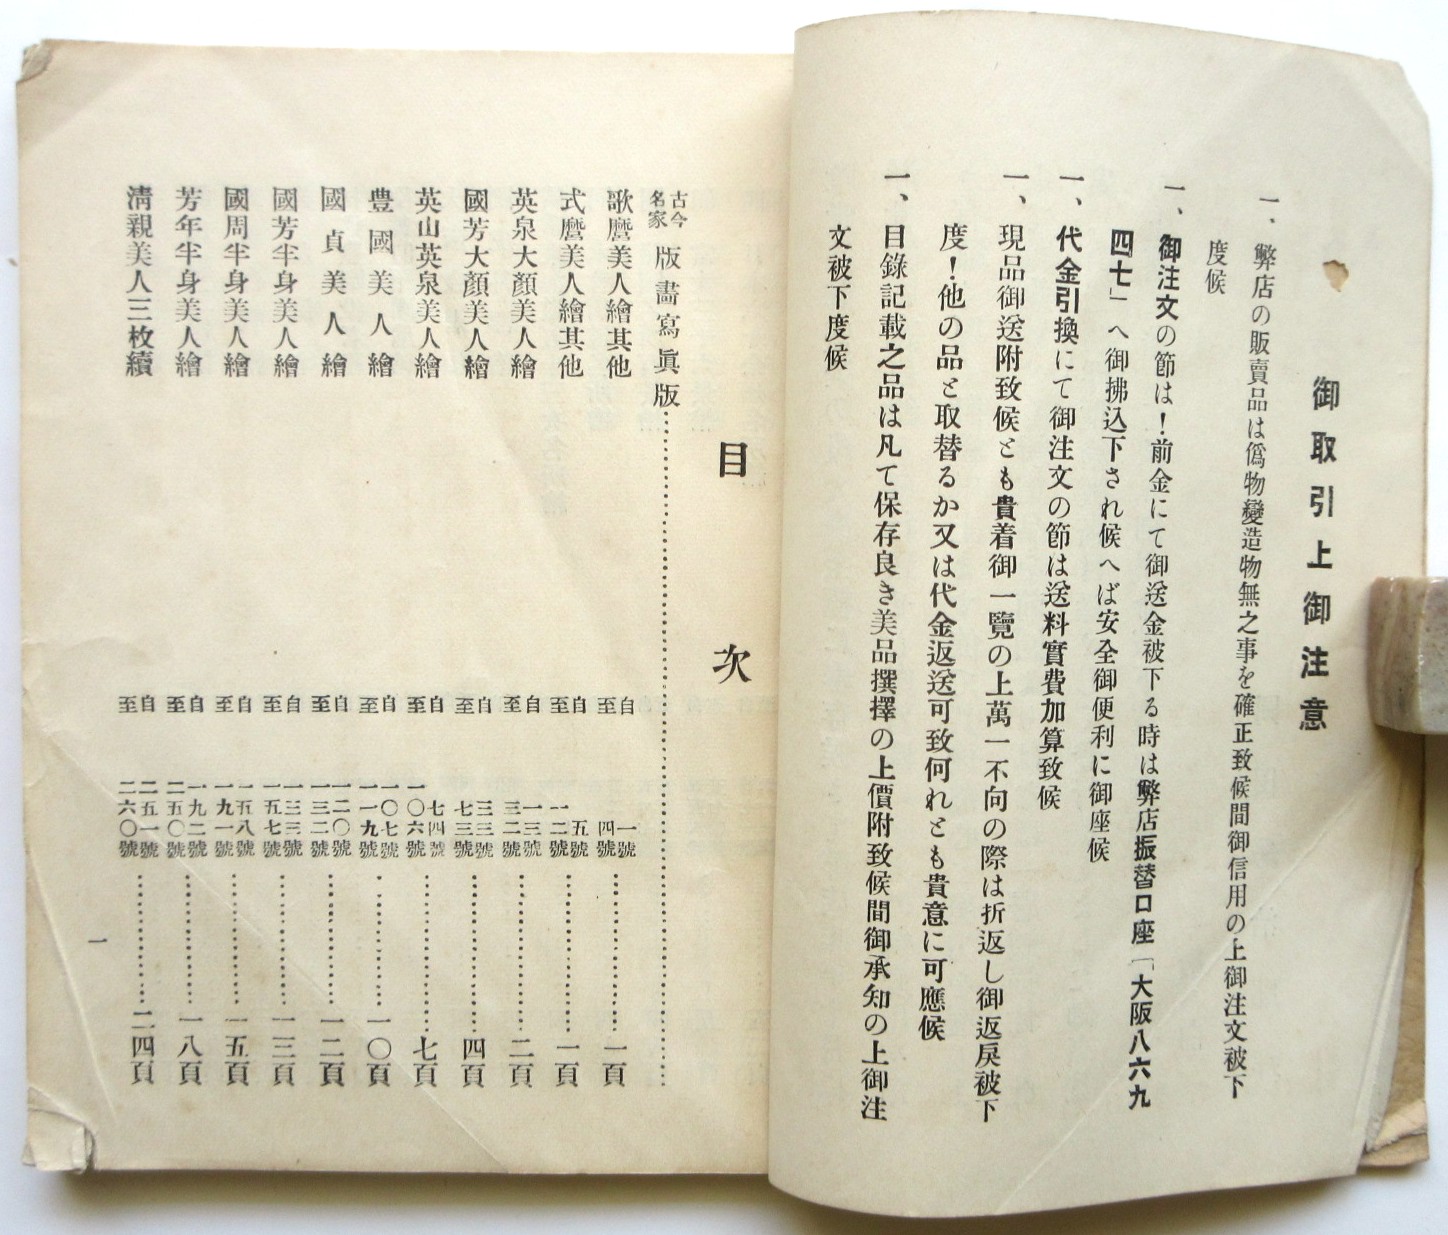 御取引上御注意
一、弊店の販賣品は僞物變造物無之事を確正致候間御信用の上御注文被下
度候
一、御注文の節は！前金にて御送金被下る時は弊店振替口座「大阪八六九
四七」へ御拂込下され候へば安全御便利に御座候
一、代金引換にて御注文の節は送料實費加算致候
一、現品御送附致候とも貴着御一覽の上萬一不向の際は折返し御返戻被下
度！他の品と取替るか又は代金返送可致何れとも貴意に可應候
一、目錄記載之品は凡て保存良き美品撰擇の上價附致候間御承知の上御注
文被下度候
目次
古今名家版畵寫眞版
歌麿美人繪其他 自一號至四號 一頁
式麿美人繪其他 自五號至一二號 一頁
英泉大顏美人繪 自一三號至三二號 二頁
國芳大顏美人繪 自三三號至七三號 四頁
英山英泉美人繪 自七四號至一〇六號 七頁
豊國美人繪 自一〇七號至一一九號 一〇頁
國貞美人繪 自一二〇號至一三二號 一二頁
國芳半身美人繪 自一三三號至一五七號 一三頁
國周半身美人繪 自一五八號至一九一號 一五頁
芳年半身美人繪 自一九二號至二五〇號 一八頁
清親美人三枚續 自二五一號至二六〇號 二四頁
一